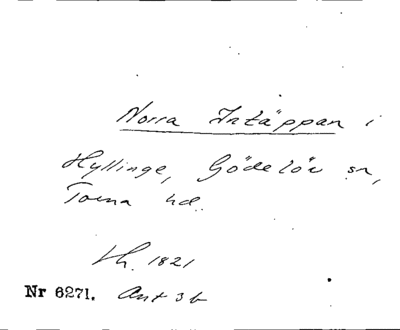 Norra Intäppan i
Hyllinge, Gödelöv sn,
Torna hd.
Lh. 1821
Nr 6271. Ant 3 b